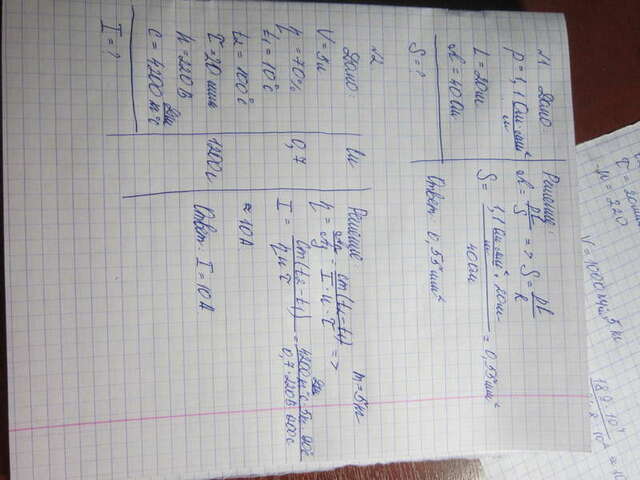 №1 Дано
ρ = 1,1 Ом·мм²/м
L = 20м
R = 40 Ом
S = ?
Решение:
R = ρL/S => S = ρL/R
S = 1,1 Ом·мм²/м · 20м / 40 Ом = 0,55 мм²
Ответ: 0,55 мм²
№2 Дано:
V = 5л
η = 70%
t₁ = 10°C
t₂ = 100°C
τ = 20 мин
U = 220 В
c = 4200 Дж/кг°C
I = ?
Си
0,7
1200с
Решение:
m = 5кг
η = Aп/Aз = cm(t₂-t₁)/I·U·τ =>
I = cm(t₂-t₁)/ηUτ =
≈ 10А
Ответ: I = 10А